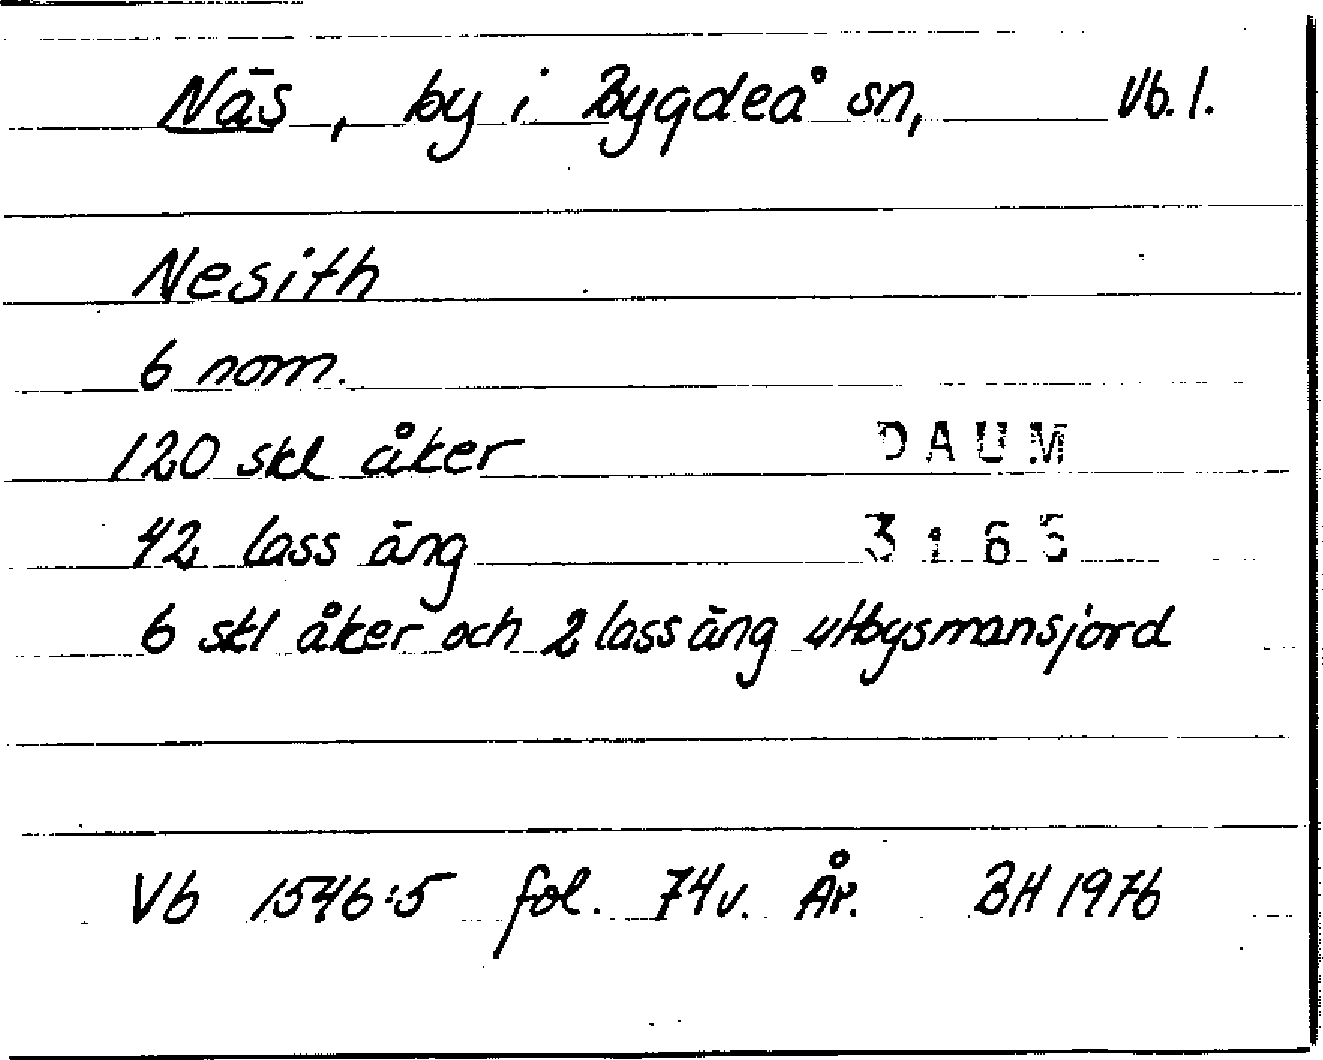 Näs, by i Bygdeå sn, Vb. l.
Nesith
6 nom.
120 skl åker
DAUM
42 lass äng
6 skl åker och 2 lass äng utbysmansjord
Vb 1546:5 fol. 74v. År. BH 1976